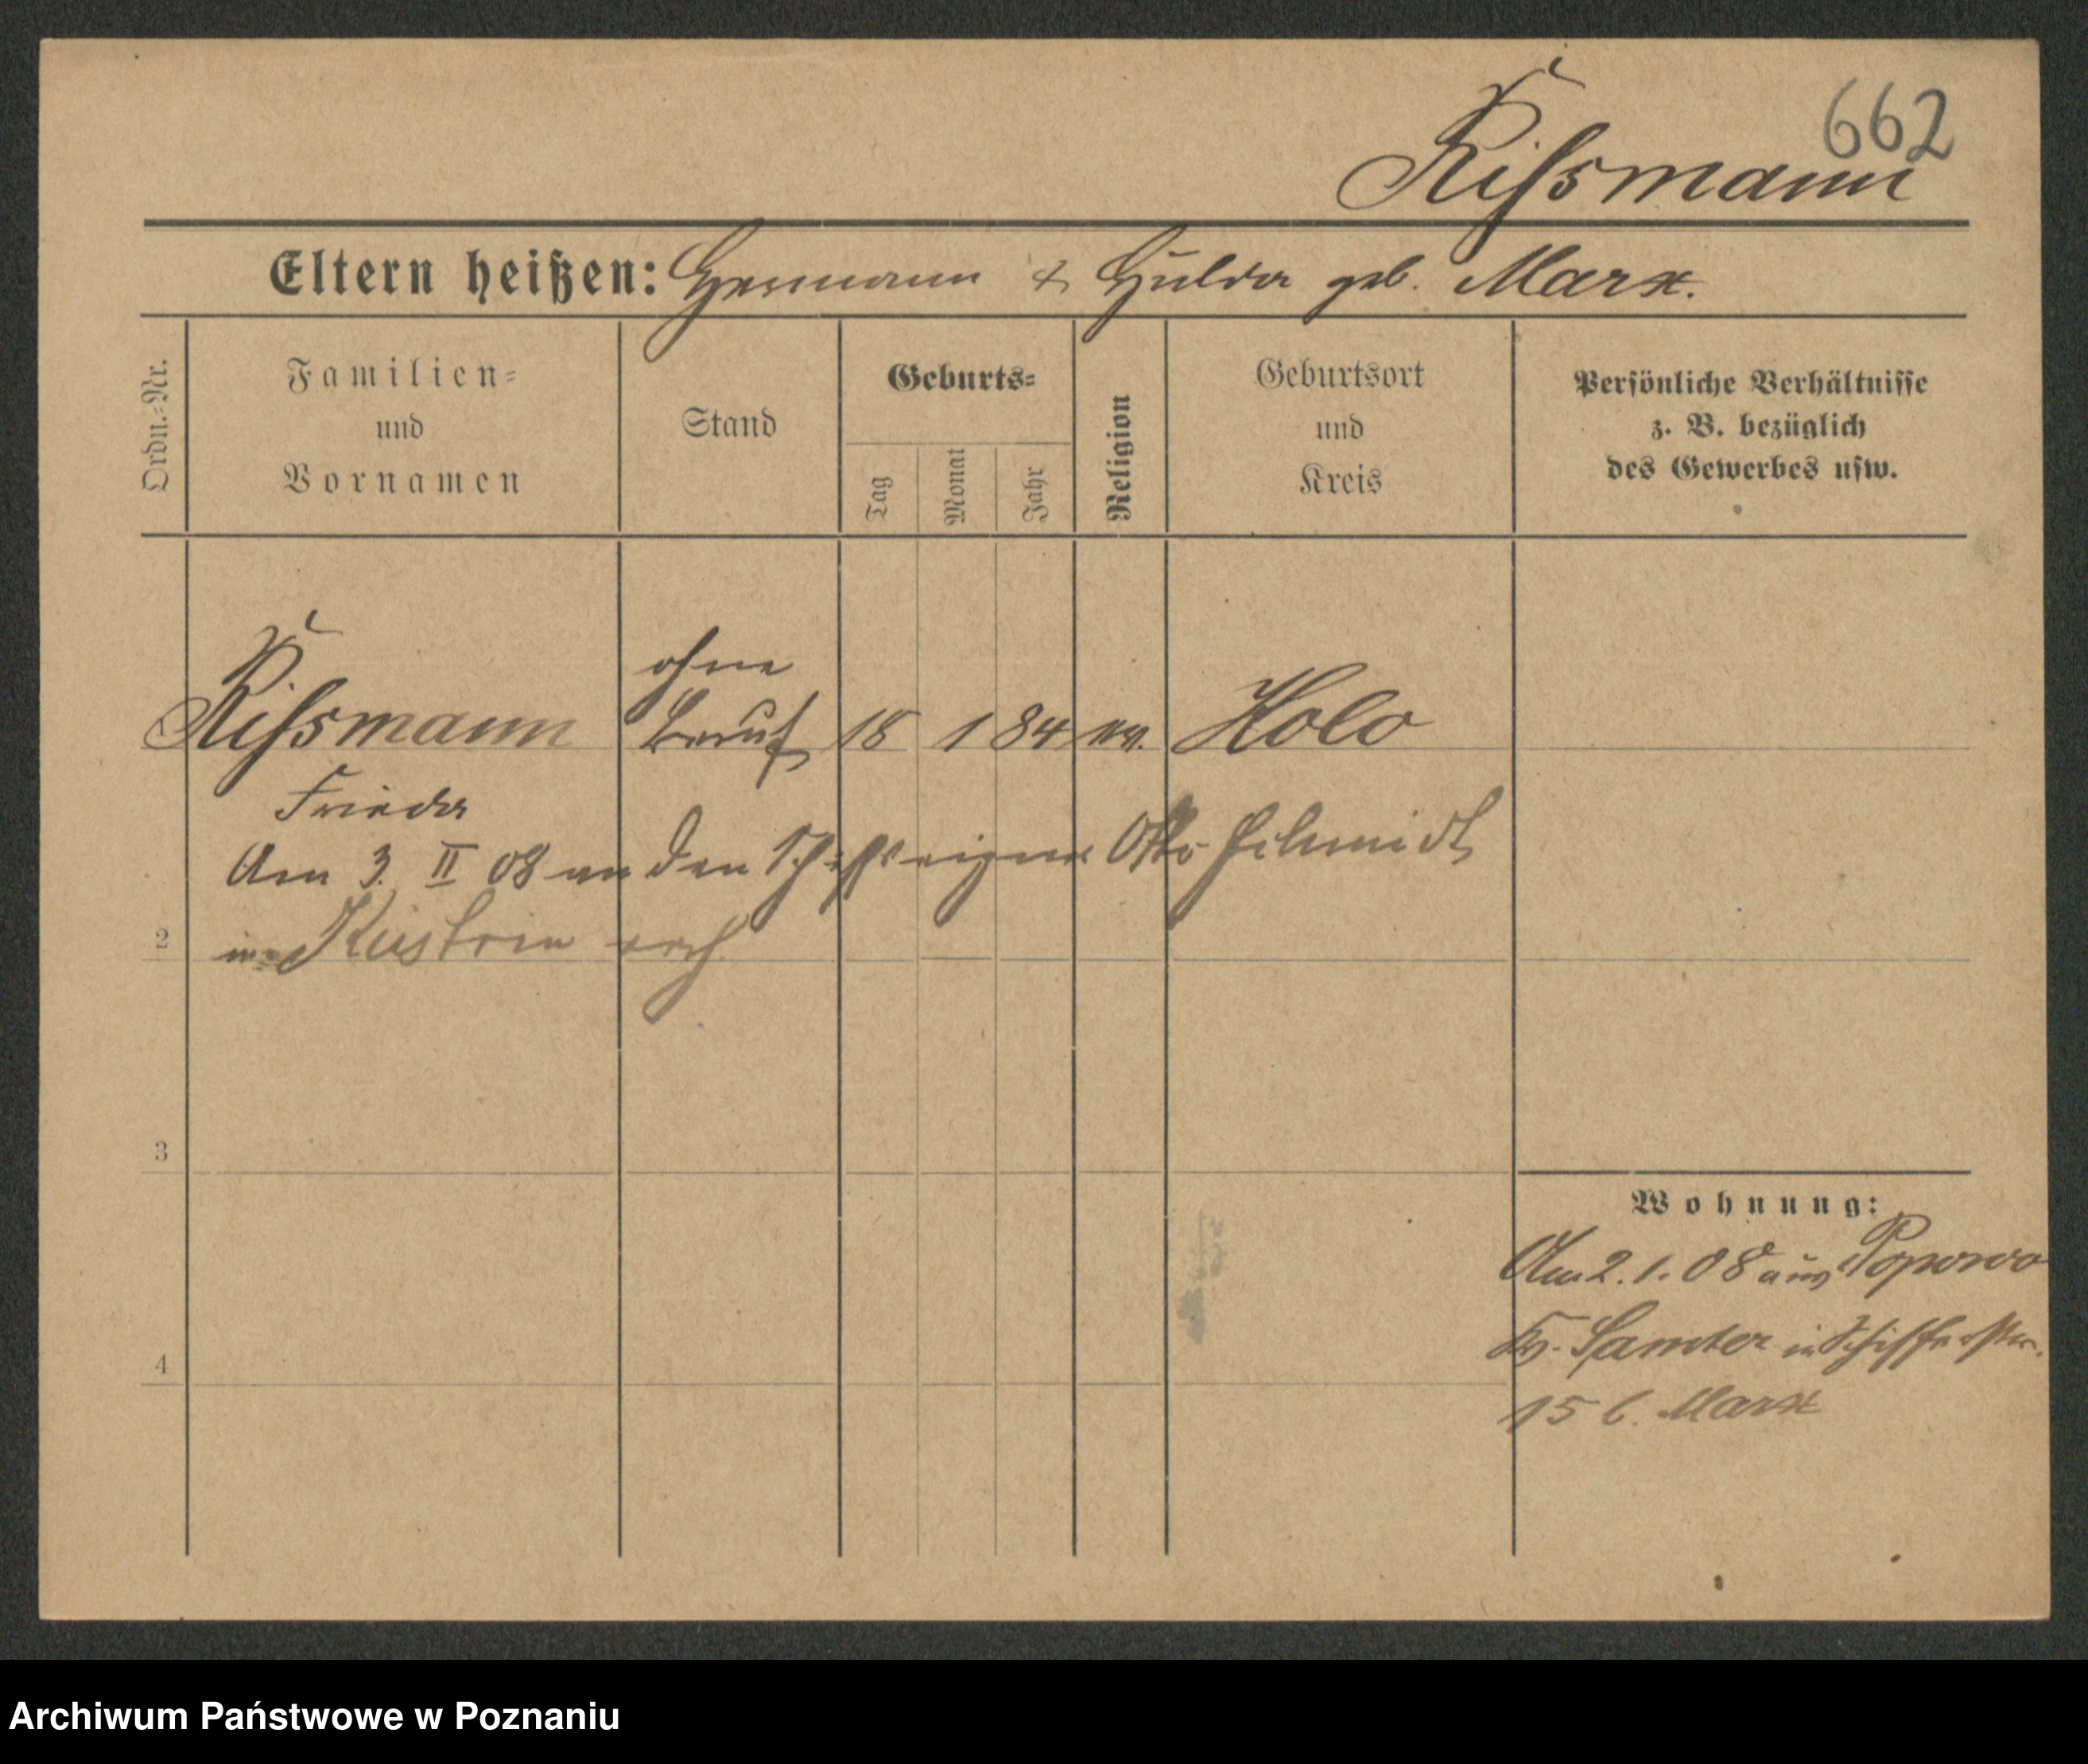 662
Rissmann
Eltern heißen: Hermann & Hulda geb. Marx.
Ordn.=Nr.
Familien=
und
Vornamen
Stand
Geburts=
Tag
Monat
Jahr
Religion
Geburtsort
und
Kreis
Persönliche Verhältnisse
z. B. bezüglich
des Gewerbes usw.
Rissmann ohne Beruf 18 1 84 ev. Kolo
Frieda
Am 3. II 08 an den Schiffseigner Otto Schmidt
2
in Küstrin verh.
3
4
Wohnung:
Am 2. 1. 08 aus Popowo
Kr. Samter in Schifferstr.
15 b. Marx
Archiwum Państwowe w Poznaniu